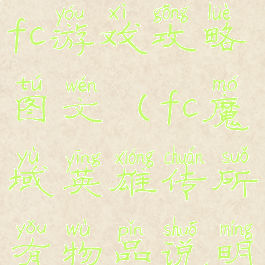 yóu xì gōng lüè
fc游戏攻略
tú wén mó
图文(fc魔
yù yīng xióng chuán suǒ
域英雄传所
yǒu wù pǐn shuō míng
有物品说明